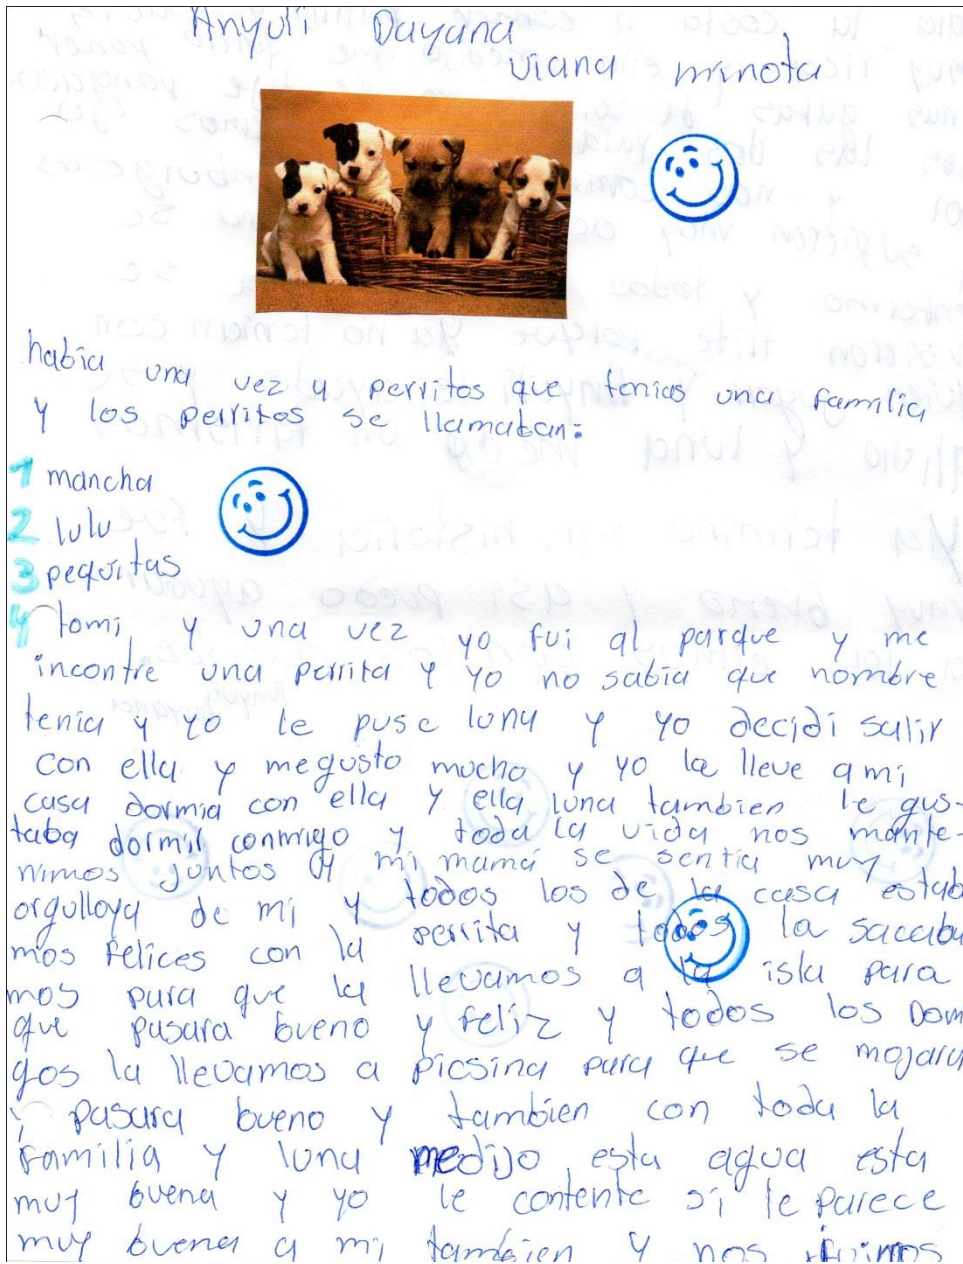 Anyuli Dayana
viana minota
había una vez 4 perritos que tenias una familia
y los perritos se llamaban:
1 mancha
2 lulu
3 pequitas
4 tomi, y una vez yo fui al parque y me
incontre una perrita y yo no sabia que nombre
tenia y yo le puse luna y yo decidi salir
con ella y megusto mucho y yo la lleve a mi
casa dormia con ella y ella luna tambien le gus-
taba dormir conmigo y toda la vida nos mante-
nimos juntos y mi mamá se sentia muy
orgulloya de mi y todos los de la casa estaba
mos felices con la perrita y todos la sacaba
mos para que la llevamos a la isla para
que pasara bueno y feliz y todos los Dom
gos la llevamos a picsina para que se mojara
y pasara bueno y tambien con toda la
familia y luna medijo esta agua esta
muy buena y yo le contente si le parece
muy buena a mi tambien y nos fuimos